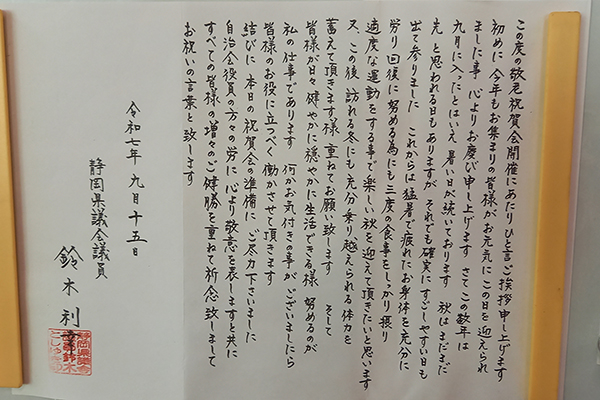 この度の敬老祝賀会開催にあたりひと言ご挨拶申し上げます
初めに 今年もお集まりの皆様がお元気にこの日を迎えられ
ました事 心よりお慶び申し上げます さてこの数年は
九月に入ったとはいえ 暑い日が続いております 秋はまだまだ
先と思われる日もありますが それでも確実にすごしやすい日も
出て参りました これからは猛暑で疲れたお身体を充分に
労り回復に努める為にも三度の食事をしっかり摂り
適度な運動をする事で楽しい秋を迎えて頂きたいと思います
又、この後 訪れる冬にも充分乗り越えられる体力を
蓄えて頂きます様 重ねてお願い致します そして
皆様が日々健やかに穏やかに生活できる様 努めるのが
私の仕事であります 何かお気付きの事がございましたら
皆様のお役に立つべく働かさせて頂きます
結びに 本日の祝賀会の準備に ご尽力下さいました
自治会役員の方々の労に 心より敬意を表しますと共に
すべての皆様の増々のご健勝を重ねて祈念致しまして
お祝いの言葉と致します
令和七年 九月十五日
静岡県議会議員
鈴木利